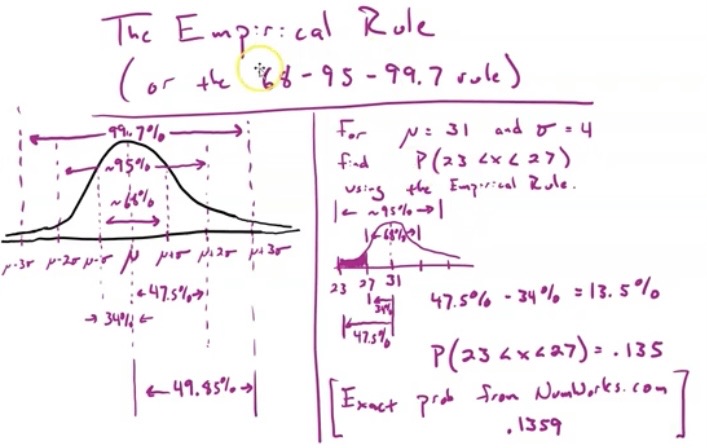 The Empirical Rule
(or the 68-95-99.7 rule)
99.7%
~95%
~68%
μ-3σ μ-2σ μ-σ μ μ+σ μ+2σ μ+3σ
47.5%
34%
49.85%
For μ = 31 and σ = 4
find P(23 < x < 27)
using the Empirical Rule.
~95%
68%
23 27 31
34%
47.5%
47.5% - 34% = 13.5%
P(23 < x < 27) = .135
[Exact prob from NumWorks.com
.1359]